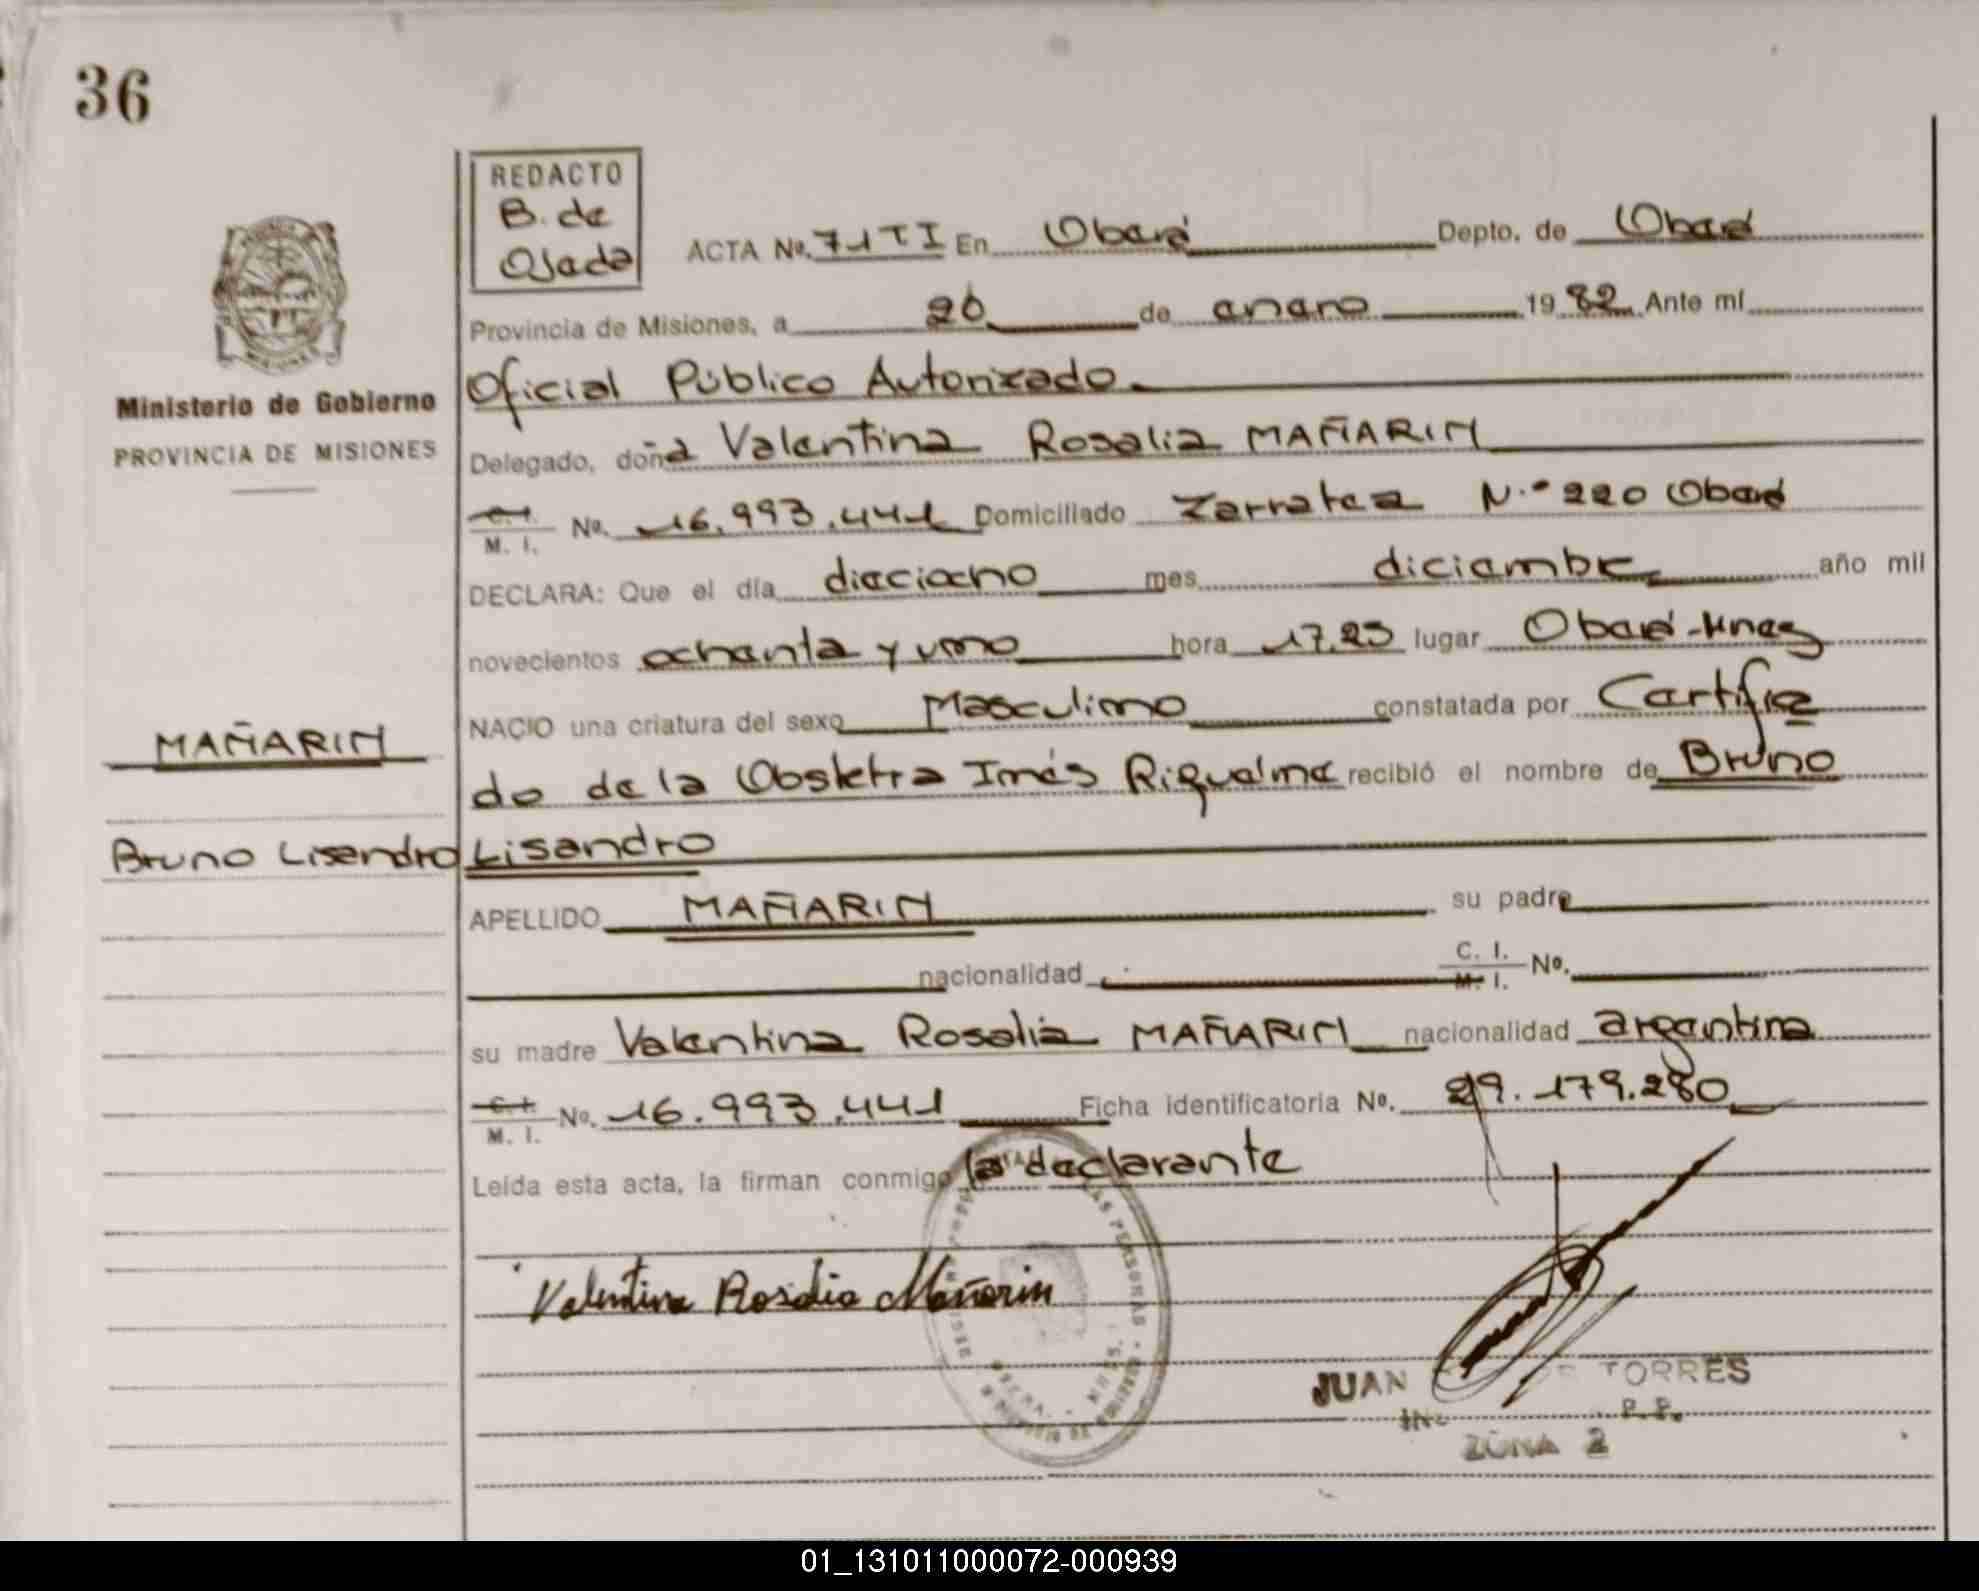 36
REDACTO
B. de
Ojeda
ACTA Nº. 71TI En Oberá Depto. de Oberá
Provincia de Misiones, a 26 de enero 1982 Ante mí
Oficial Público Autorizado
Delegado, doña Valentina Rosalia MAÑARIN
C. I.
M. I. No. 16.993.441 Domiciliado Zarratea N.º 220 Oberá
DECLARA: Que el día dieciocho mes diciembre año mil
novecientos ochenta y uno hora 17,25 lugar Oberá-Mnes
NACIO una criatura del sexo Masculino constatada por Certifica
do de la Obstetra Inés Riquelme recibió el nombre de Bruno
Lisandro
APELLIDO MAÑARIN su padre
nacionalidad C. I.
M. I. Nº.
su madre Valentina Rosalia MAÑARIN nacionalidad argentina
C. I.
M. I. Nº. 16.993.441 Ficha identificatoria Nº. 29.179.280
Leída esta acta, la firman conmigo la declarante
Valentina Rosalia Mañarin
JUAN TORRES
P. P.
ZONA 2
Ministerio de Gobierno
PROVINCIA DE MISIONES
MAÑARIN
Bruno Lisandro
01_131011000072-000939